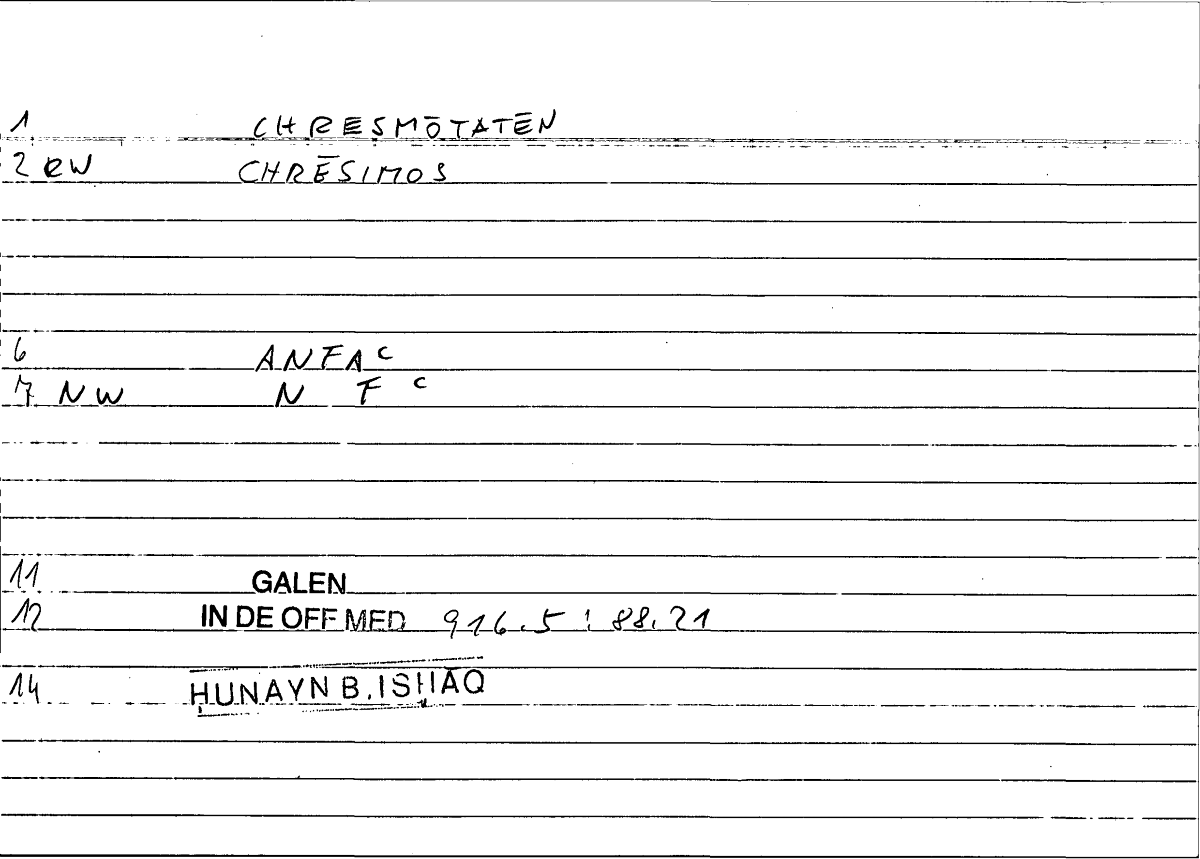 1 CHRESMŌTATĒN
2 RW CHRĒSIMOS
6 ANFAᶜ
7 NW N F ᶜ
11 GALEN
12 IN DE OFF MED 916.5 : 88.21
14 HUNAYN B. ISḤĀQ